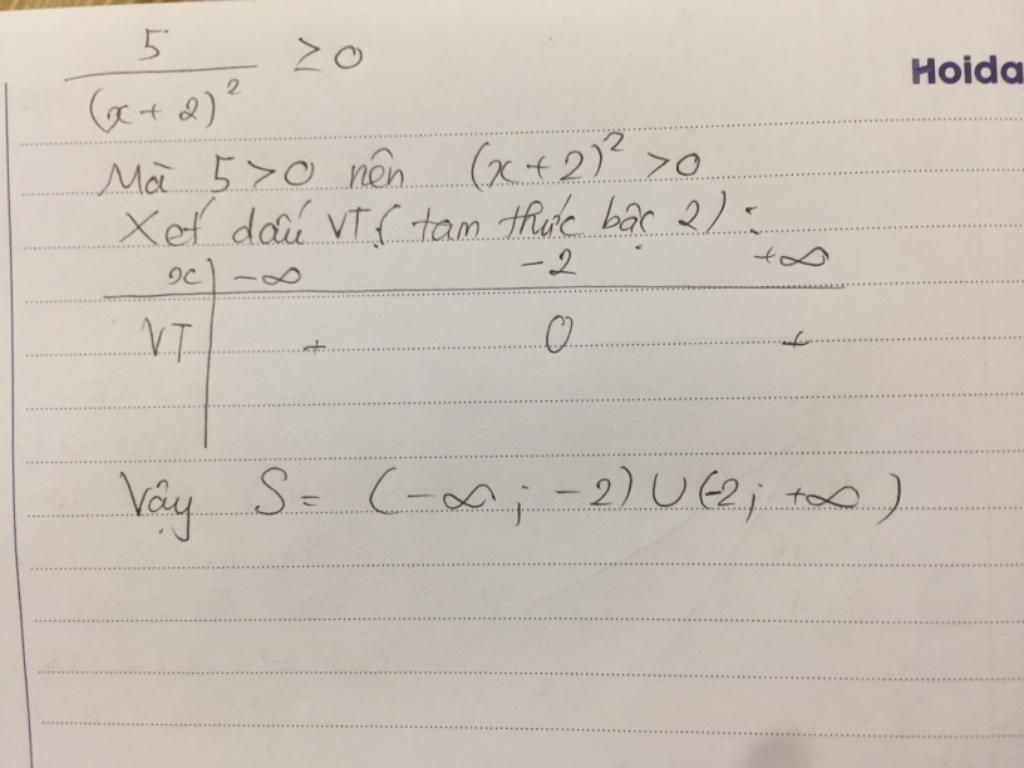 5/(x+2)² ≥ 0
Hoida
Mà 5>0 nên (x+2)² >0
Xét dấu VT (tam thức bậc 2) :
x -∞ -2 +∞
VT + 0 +
Vậy S = (-∞; -2) ∪ (-2; +∞)